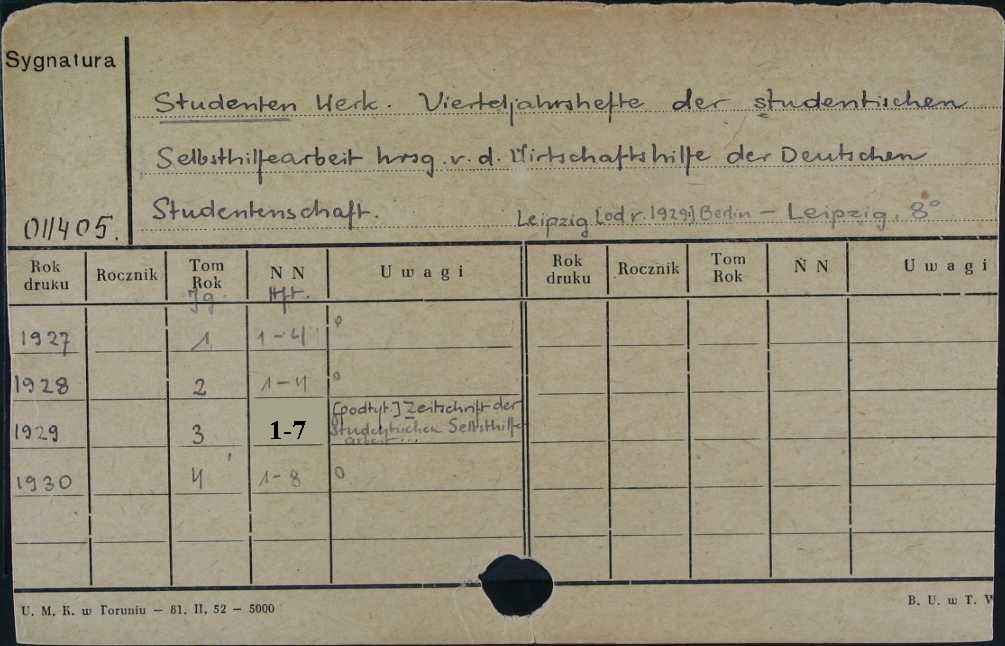 Sygnatura
Studenten Werk. Vierteljahrshefte der studentischen
Selbsthilfearbeit hrsg. v. d. Wirtschaftshilfe der Deutschen
Studentenschaft.
Leipzig [od r. 1929:] Berlin – Leipzig. 8°
01405.
Rok druku Rocznik Tom Rok N N Uwagi Rok druku Rocznik Tom Rok N N Uwagi
Jg. Hft.
1927 1 1-4 0
1928 2 1-4 0
1929 3 1-7 [podtyt.] Zeitschrift der
Studentischen Selbsthilfe
arbeit...
1930 4 1-8 0
U. M. K. w Toruniu — 61. II. 52 — 5000
B. U. w T. W